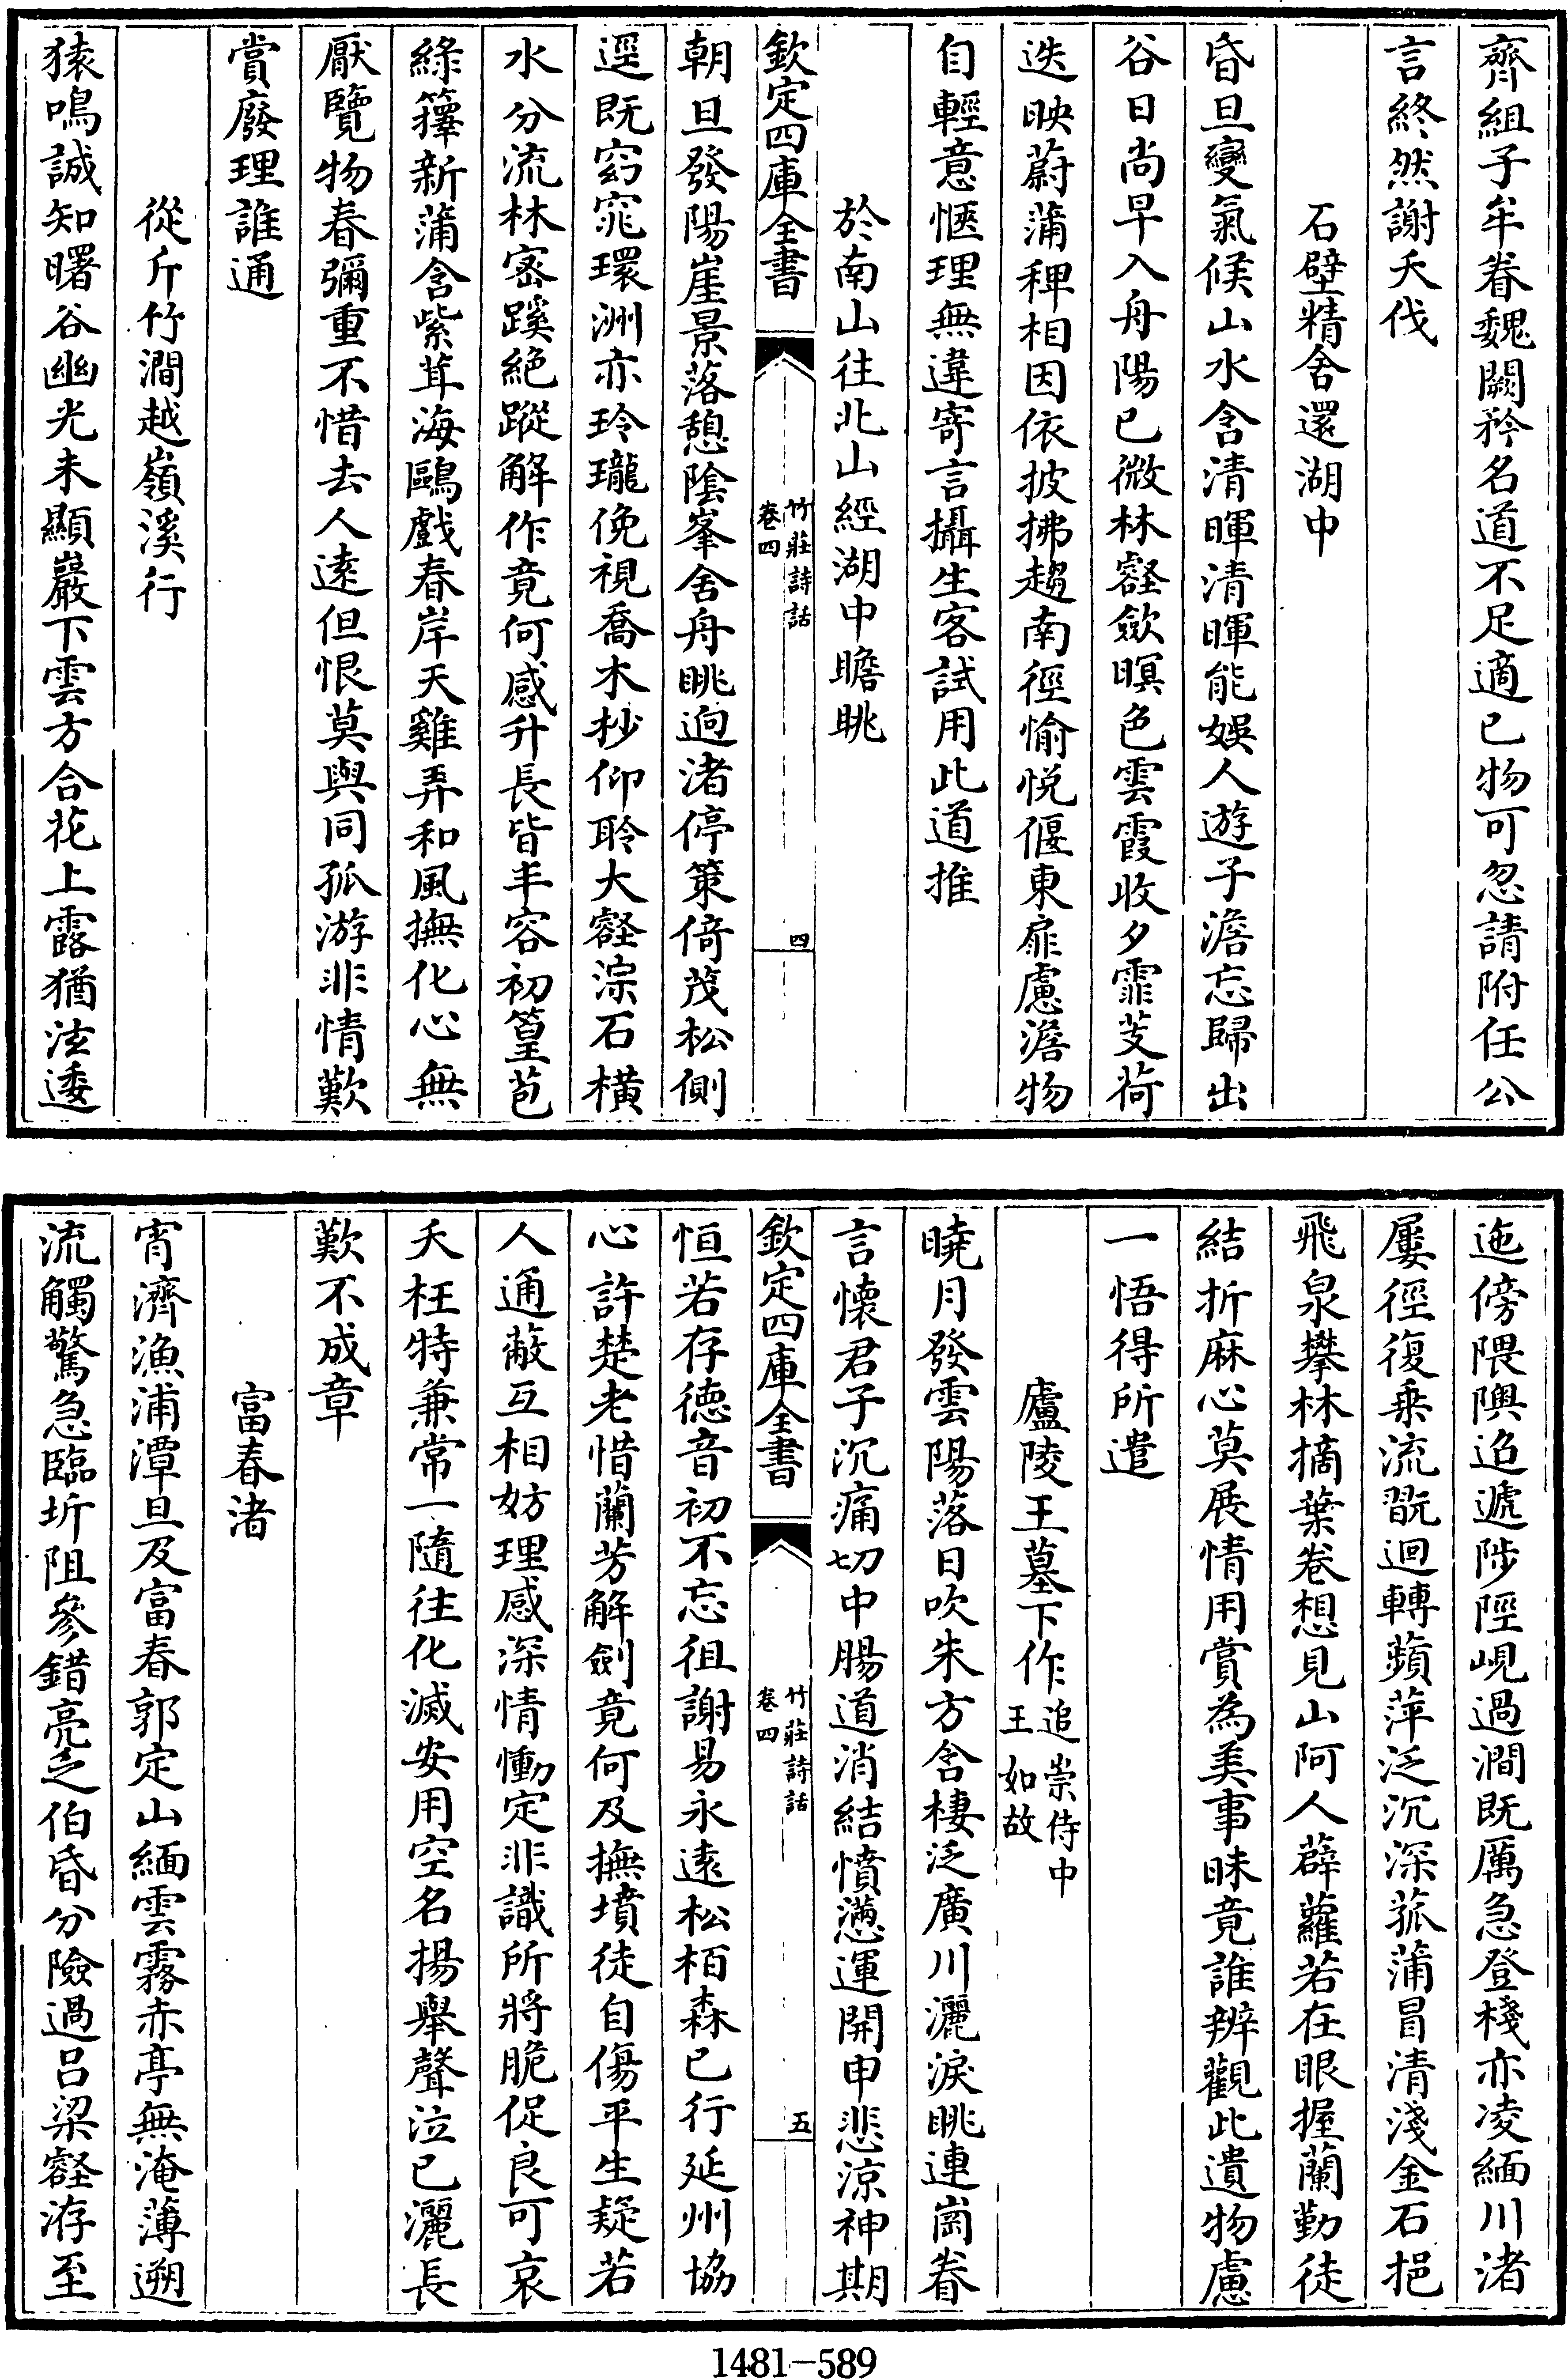 齊組子牟眷魏闕矜名道不足適已物可忽請附任公
言終然謝夭伐
石壁精舍還湖中
昏旦變氣候山水含清暉清暉能娛人遊子澹忘歸出
谷日尚早入舟陽已微林壑歛暝色雲霞收夕霏芰荷
迭映蔚蒲稗相因依披拂趨南徑愉悅偃東扉慮澹物
自輕意愜理無違寄言攝生客試用此道推
於南山往北山經湖中瞻眺
欽定四庫全書
竹莊詩話
卷四
四
朝旦發陽崖景落憩陰峯舍舟眺逈渚停策倚茂松側
逕既窈窕環洲亦玲瓏俛視喬木抄仰聆大壑淙石橫
水分流林宻蹊絶蹤解作竟何感升長皆丰容初篁苞
綠籜新蒲含紫茸海鷗戲春岸天雞弄和風撫化心無
厭覽物春彌重不惜去人逺但恨莫與同孤游非情歎
賞廢理誰通
從斤竹澗越嶺溪行
猿鳴誠知曙谷幽光未顯巖下雲方合花上露猶泫逶
迤傍隈隩迢遞陟陘峴過澗既厲急登棧亦凌緬川渚
屢徑復乗流翫迴轉蘋萍泛沉深菰蒲冒清淺金石挹
飛泉攀林摘葉卷想見山阿人薜蘿若在眼握蘭勤徒
結折麻心莫展情用賞為美事昧竟誰辨觀此遺物慮
一悟得所遣
廬陵王墓下作
追崇侍中
王如故
曉月發雲陽落日吹朱方含棲泛廣川灑淚眺連崗眷
言懷君子沉痛切中腸道消結憤懣運開申悲涼神期
欽定四庫全書
竹莊詩話
卷四
五
恒若存徳音初不忘徂謝易永逺松栢森已行延州協
心許楚老惜蘭芳解劍竟何及撫墳徒自傷平生疑若
人通蔽互相妨理感深情慟定非識所將脆促良可哀
夭枉特兼常一隨往化滅安用空名揚舉聲泣已灑長
歎不成章
富春渚
宵濟漁浦潭旦及富春郭定山緬雲霧赤亭無淹薄遡
流觸驚急臨圻阻參錯亮乏伯昏分險過吕梁壑洊至
1481-589